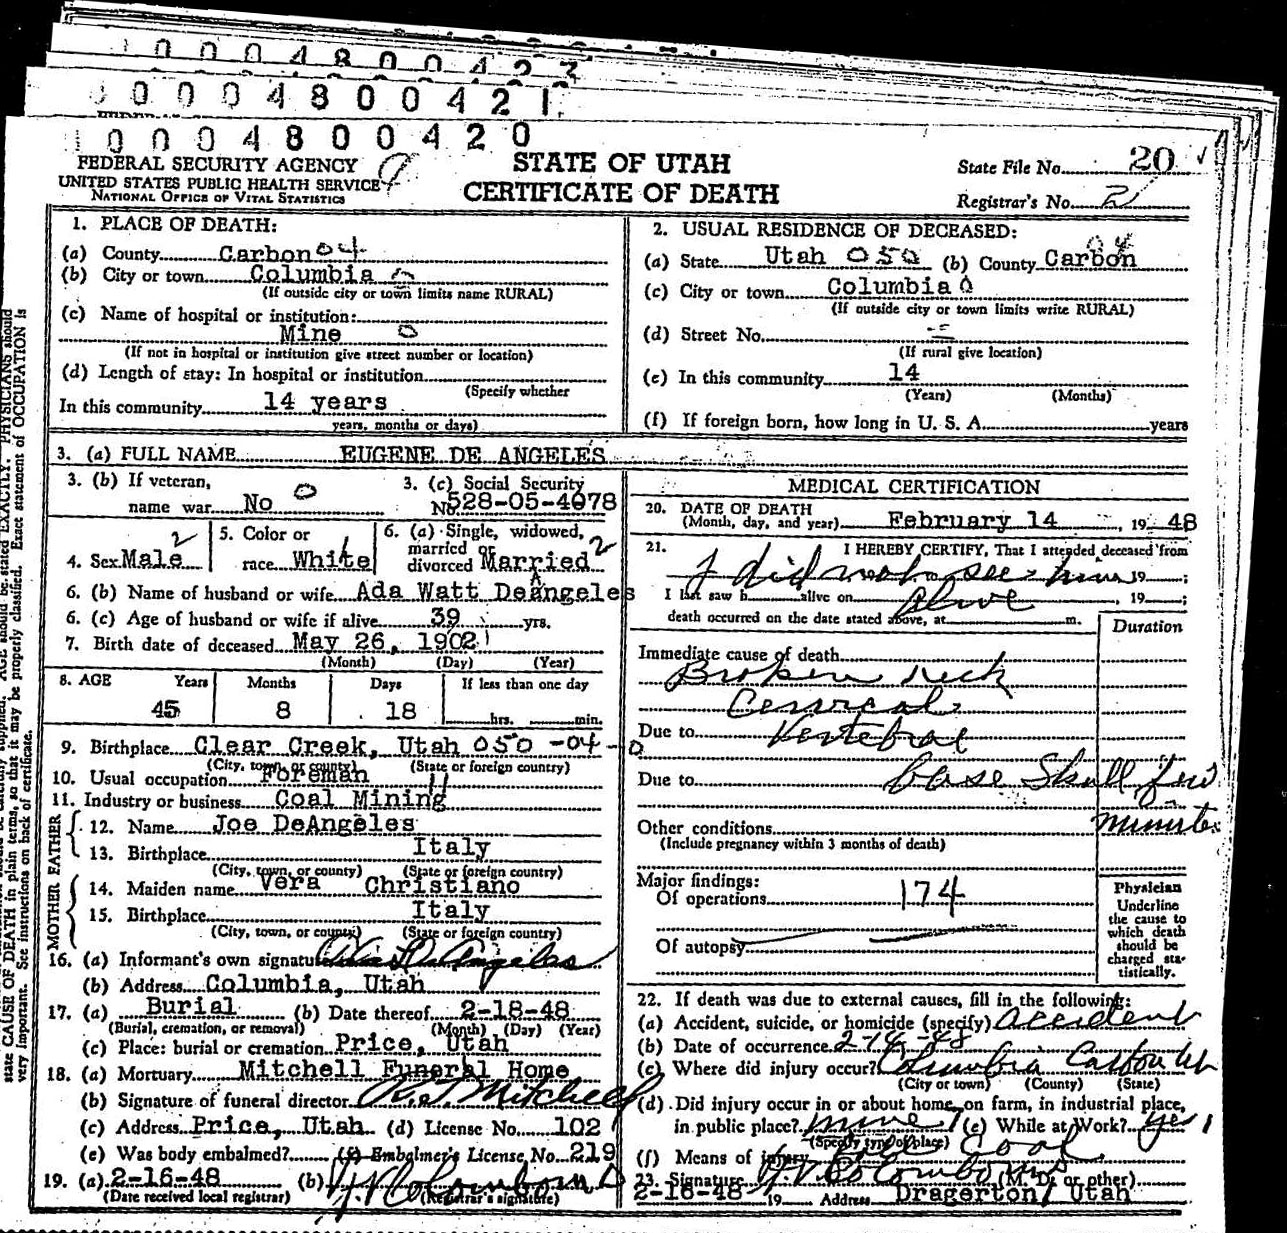 0 0 0 4 8 0 0 4 2 3
0 0 0 4 8 0 0 4 2 1
0 0 0 4 8 0 0 4 2 0
FEDERAL SECURITY AGENCY
UNITED STATES PUBLIC HEALTH SERVICE
NATIONAL OFFICE OF VITAL STATISTICS
STATE OF UTAH
CERTIFICATE OF DEATH
State File No. 20
Registrar's No. 21
1. PLACE OF DEATH:
(a) County Carbon 04
(b) City or town Columbia 0
(If outside city or town limits name RURAL)
(c) Name of hospital or institution:
Mine 0
(If not in hospital or institution give street number or location)
(d) Length of stay: In hospital or institution
(Specify whether
In this community 14 years
years, months or days)
2. USUAL RESIDENCE OF DECEASED:
(a) State Utah 050 (b) County Carbon 04
(c) City or town Columbia 0
(If outside city or town limits write RURAL)
(d) Street No.
(If rural give location)
(e) In this community 14
(Years) (Months)
(f) If foreign born, how long in U. S. A. years
3. (a) FULL NAME EUGENE DE ANGELES
3. (b) If veteran,
name war No 0
3. (c) Social Security
No. 528-05-4078
4. Sex Male 2
5. Color or
race White 1
6. (a) Single, widowed,
married or
divorced Married 2
6. (b) Name of husband or wife Ada Watt DeAngeles
6. (c) Age of husband or wife if alive 39 yrs.
7. Birth date of deceased May 26, 1902
(Month) (Day) (Year)
8. AGE Years Months Days If less than one day
45 8 18 hrs. min.
9. Birthplace Clear Creek, Utah 050-04-0
(City, town, or county) (State or foreign country)
10. Usual occupation Foreman
11. Industry or business Coal Mining
FATHER
12. Name Joe DeAngeles
13. Birthplace Italy
(City, town, or county) (State or foreign country)
MOTHER
14. Maiden name Vera Christiano
15. Birthplace Italy
(City, town, or county) (State or foreign country)
16. (a) Informant's own signature DeAngeles
(b) Address Columbia, Utah
17. (a) Burial (b) Date thereof 2-18-48
(Burial, cremation, or removal) (Month) (Day) (Year)
(c) Place: burial or cremation Price, Utah
18. (a) Mortuary Mitchell Funeral Home
(b) Signature of funeral director Mitchell
(c) Address Price, Utah (d) License No. 102
(e) Was body embalmed? (f) Embalmer's License No. 219
19. (a) 2-16-48 (b)
(Date received local registrar) (Registrar's signature)
MEDICAL CERTIFICATION
20. DATE OF DEATH
(Month, day, and year) February 14, 19 48
21. I HEREBY CERTIFY, That I attended deceased from
I did not see him 19 ;
I last saw h alive on alive, 19 ;
death occurred on the date stated above, at m.
Duration
Immediate cause of death
Broken neck
Cervical
Due to Vertebrae
Due to base Skull few
minutes
Other conditions
(Include pregnancy within 3 months of death)
Major findings:
Of operations 174
Of autopsy
Physician
Underline
the cause to
which death
should be
charged sta-
tistically.
22. If death was due to external causes, fill in the following:
(a) Accident, suicide, or homicide (specify) accident
(b) Date of occurrence 2-14-48
(c) Where did injury occur? Columbia Carbon Ut
(City or town) (County) (State)
(d) Did injury occur in or about home, on farm, in industrial place,
in public place? mine (e) While at Work? yes
(Specify type of place)
(f) Means of injury Coal
23. Signature (M. D. or other)
2-16-48 19 Address Dragerton, Utah
state CAUSE OF DEATH in plain terms, so that it may be properly classified. Exact statement of OCCUPATION is
very important. See instructions on back of certificate.